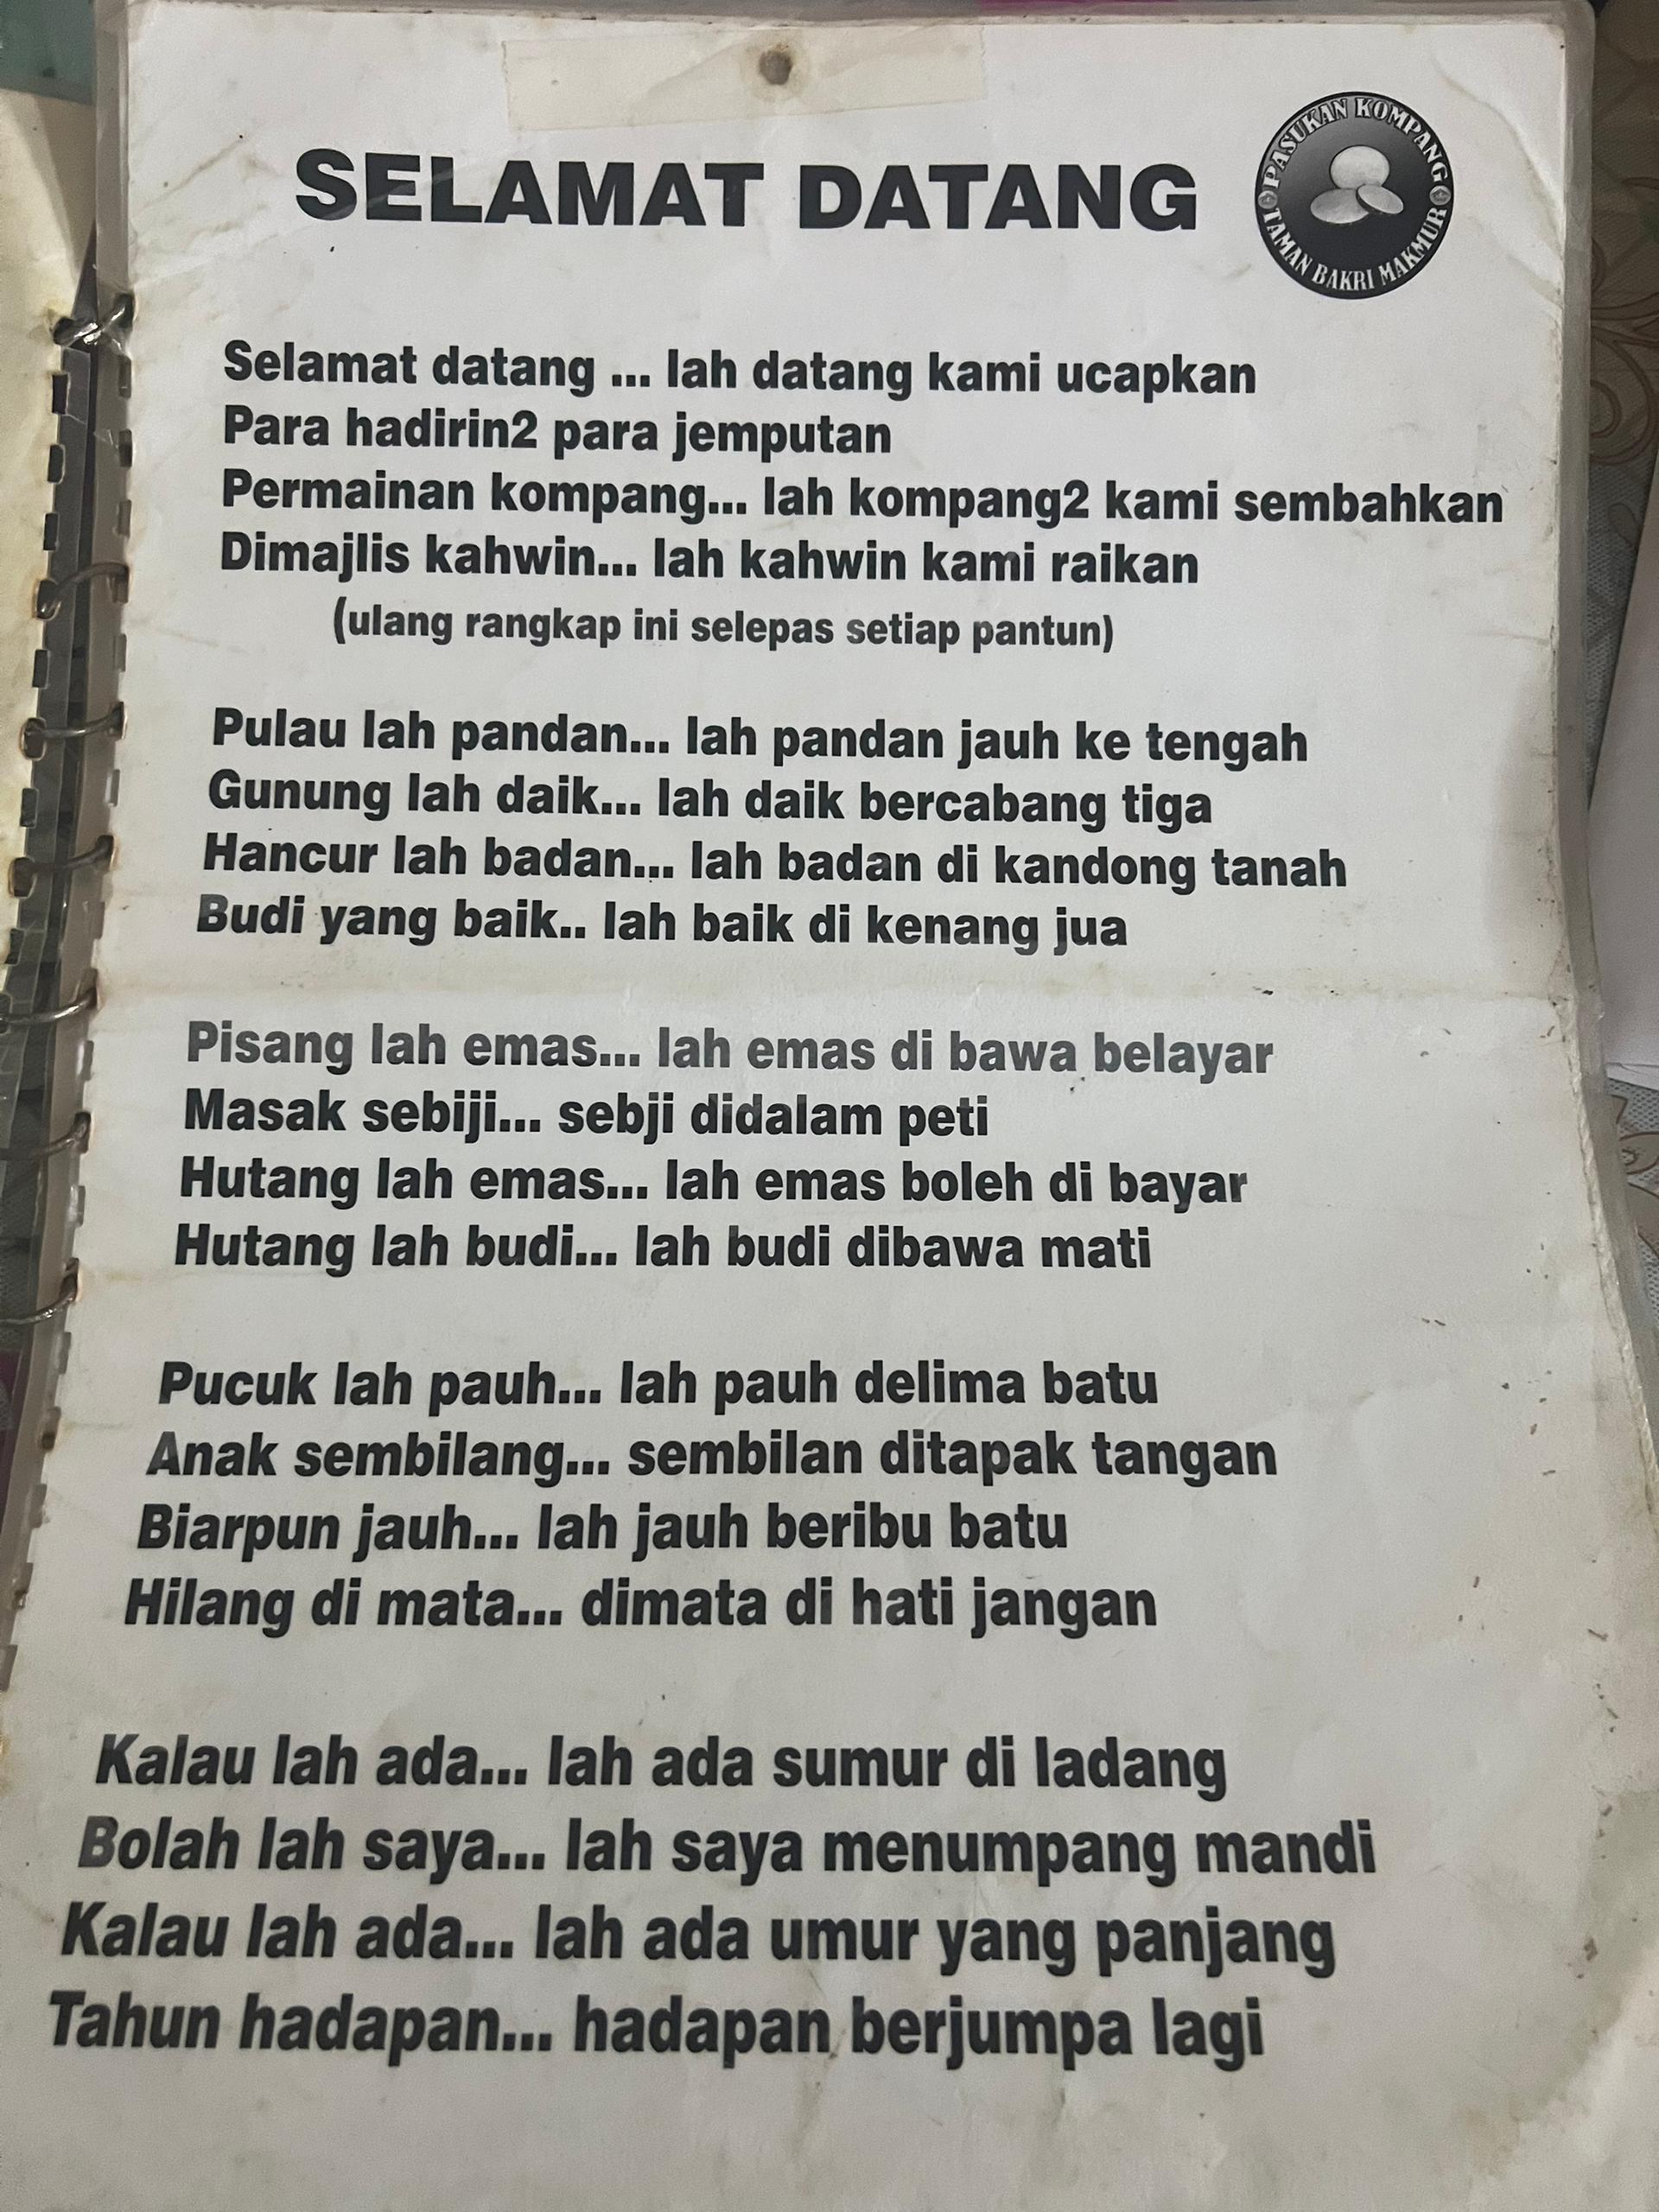 SELAMAT DATANG
PASUKAN KOMPANG
TAMAN BAKRI MAKMUR
Selamat datang ... lah datang kami ucapkan
Para hadirin2 para jemputan
Permainan kompang... lah kompang2 kami sembahkan
Dimajlis kahwin... lah kahwin kami raikan
(ulang rangkap ini selepas setiap pantun)
Pulau lah pandan... lah pandan jauh ke tengah
Gunung lah daik... lah daik bercabang tiga
Hancur lah badan... lah badan di kandong tanah
Budi yang baik.. lah baik di kenang jua
Pisang lah emas... lah emas di bawa belayar
Masak sebiji... sebji didalam peti
Hutang lah emas... lah emas boleh di bayar
Hutang lah budi... lah budi dibawa mati
Pucuk lah pauh... lah pauh delima batu
Anak sembilang... sembilan ditapak tangan
Biarpun jauh... lah jauh beribu batu
Hilang di mata... dimata di hati jangan
Kalau lah ada... lah ada sumur di ladang
Bolah lah saya... lah saya menumpang mandi
Kalau lah ada... lah ada umur yang panjang
Tahun hadapan... hadapan berjumpa lagi